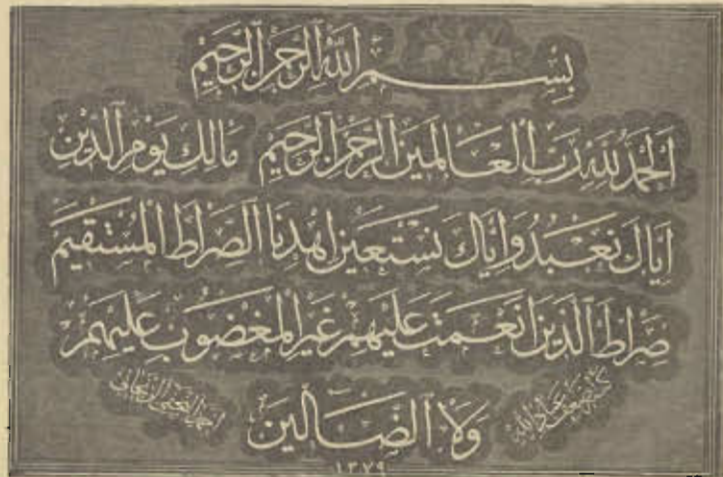 بِسْمِ اللهِ الرَّحْمنِ الرَّحِيمِ
اَلْحَمْدُ لِلّهِ رَبِّ الْعَالَمِينَ الرَّحْمنِ الرَّحِيمِ مَالِكِ يَوْمِ الدِّينِ
اِيَّاكَ نَعْبُدُ وَاِيَّاكَ نَسْتَعِينُ اِهْدِنَا الصِّرَاطَ الْمُسْتَقِيمَ
صِرَاطَ الَّذِينَ اَنْعَمْتَ عَلَيْهِمْ غَيْرِ الْمَغْضُوبِ عَلَيْهِمْ
وَلَا الضَّالِّينَ
كتبه اضعف عباد الله
احمد النجفي الزنجاني
١٣٧٩